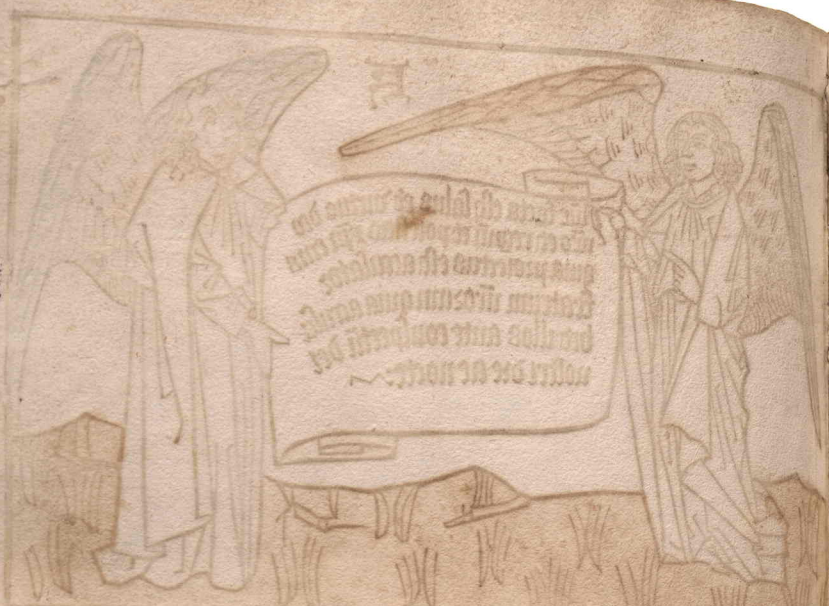 facta est salus et virtus deo
nr̄o et regnū
quia proiectus est accusator
fratrum nr̄orum quia accusa
bat illos ante conspectū dei
nostri die ac nocte